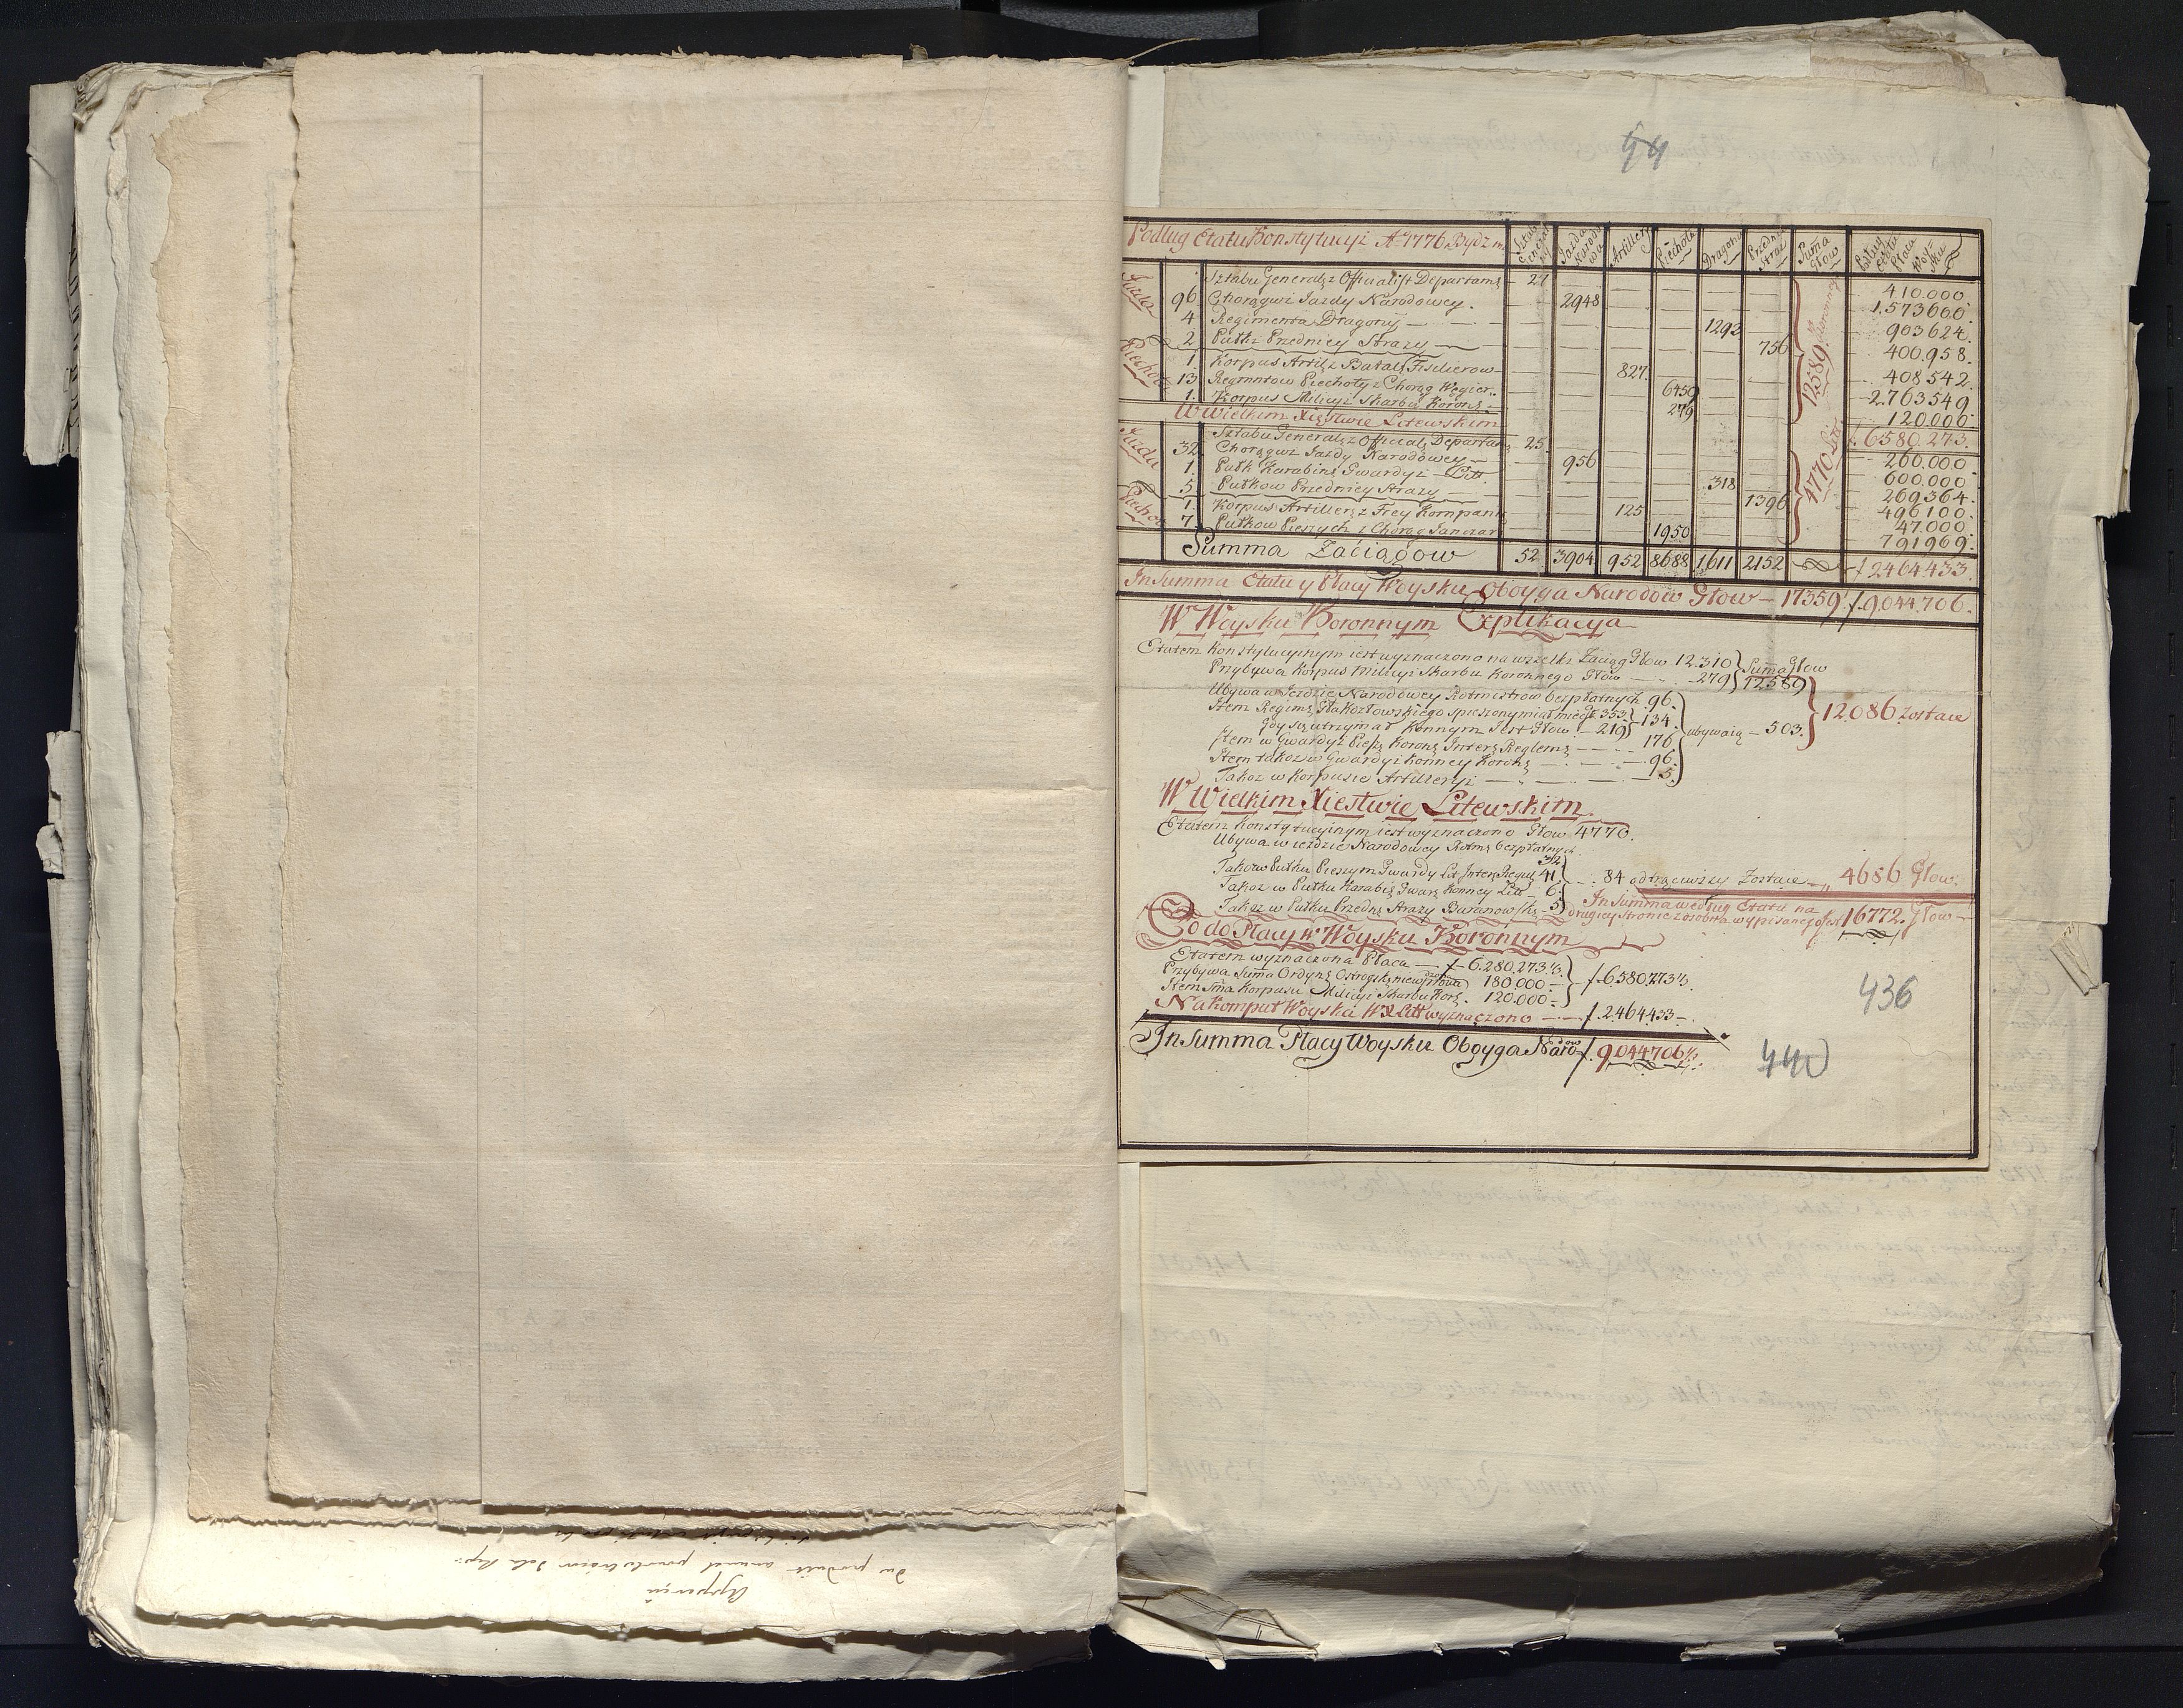 44
Podług Etatu Konstytucyi Ao 1776 Bydz ma
Sztab General Jazda Narodowa Artillery Piechota Dragonia Przednia Straż Suma Głow Płaca Woysku
Jazda
Sztabu Generalz Officialist Departams 27 410.000
96 Chorągwi Jazdy Narodowey 2948 1.573600
4 Regimenta Dragonij 1293 903624
2 Pułki Przedniey Strazy 756 400.958
Piechota
1 Korpus Artilz Batal Fisilierow 827 408542
13 Regmntow Piechoty z Chorąg Węgier 6459 2.763549
1 Korpus Milicyi Skarbu Koron 279 120.000
12589 Koronnych
W Wielkim Xięstwie Litewskim 6580.273
Jazda
Sztabu Generalz Official Departam 25 260.000
32 Chorągwi Jazdy Narodowey 956 600.000
1 Pułk Karabin Gwardyi Litt. 318 269364
5 Pułkow Przedniey Strazy 1396 496100
Piechota
1 Korpus Artillerz Frey Kompanii 125 47.000
7 Pułkow Pieszych z Chorąg Janczar 1950 791969
4770 Lit
Summa Zaciągow 52 3904 952 8688 1611 2152 f 2464433
In Summa Etatu y Płacy Woysku Oboyga Narodow Głow 17359 f 9.044.706
W Woysku Koronnym Explikacya
Etatem Konstytucyinym iest wyznaczono na wszelki Zaciąg Głow 12.310 Suma Głow
Przybywa Korpus Milicyi Skarbu Koronnego Głow 279 12589
Ubywa w Jezdzie Narodowey Rotmistrow bezpłatnych 96
Item Regim Gła Kozłowskiego spieszony miał mieć 353 134
Gdy się utrzymał Konnym Jest Głow 219 ubywaią 503 12086 Zostaie
Item w Gwardyi Piesz Koron Inter Reglem 176
Item takoz w Gwardyi Konney Koron 96
Takoz w Korpusie Artilleryi 5
W Wielkim Xiestwie Litewskim
Etatem Konstytucyinym iest wyznaczono Głow 4770
Ubywa w iezdzie Narodowey Rotm bezpłatnych
32
Takoz w Pułku Pieszym Gwardy Lit Inter Regul 41 84 odtrąciwszy Zostaie 4686 Głow
Takoz w Pułku Karabi Gwar Konney Litt 6
Takoz w Pułku Przedn Strazy Baranowsk 5
In Summa według Etatu na
drugiey stronie z osobna wypisanego jest 16772 Głow
Co do Płacy w Woysku Koronnym
Etatem wyznaczona Płaca f 6.280.273 1/3
Przybywa Suma Ordyn Ostrogsk niewprowadzona 180.000 f 6.580.273 1/3
Item Sma Korpusu Milicyi Skarbu Kor 120.000
Na komput Woyska W X Litt wyznaczono f 2464433
In Summa Płacy Woysku Oboyga Narodow f 9.044706 1/3
436
440